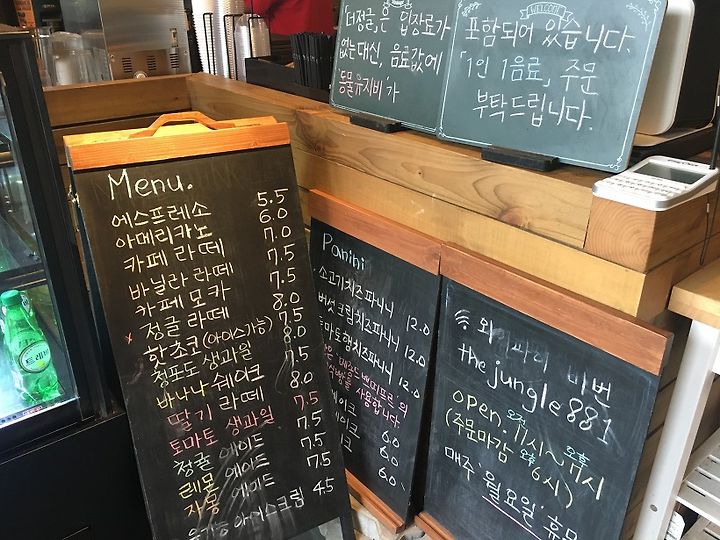 「더정글」은 입장료가
없는대신, 음료값에
'동물유지비'가
WELCOME
포함되어 있습니다.
「1인 1음료」 주문
부탁드립니다.
Menu.
에스프레소 5.5
아메리카노 6.0
카페 라떼 7.0
바닐라 라떼 7.5
카페 모카 7.5
정글 라떼 8.0
핫초코 (아이스가능) 7.5
청포도 생과일 8.0
바나나 쉐이크 7.5
딸기 라떼 8.0
토마토 생과일 7.5
정글 에이드 7.5
레몬 에이드 7.5
자몽 에이드 7.5
유기농 아이스크림 4.5
Panini
소고기치즈파니니 12.0
버섯크림치즈파니니 12.0
토마토햄치즈파니니 12.0
사용합니다.
케이크 6.0
케이크 6.0
6.0
와이파이 비번
the jungle 881
open. 오전 11시~오후 7시
(주문마감 오후 6시)
매주 '월요일' 휴무
트레비